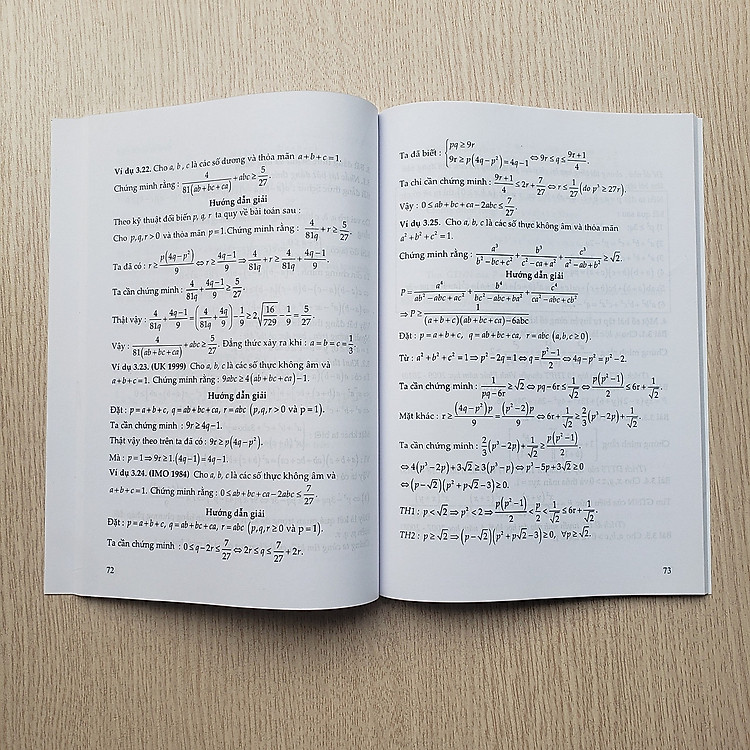 Ví dụ 3.22. Cho a, b, c là các số dương và thỏa mãn a+b+c=1.
Chứng minh rằng : 4/(81(ab+bc+ca)) + abc ≥ 5/27.
Hướng dẫn giải
Theo kỹ thuật đổi biến p, q, r ta quy về bài toán sau :
Cho p,q,r>0 và thỏa mãn p=1. Chứng minh rằng : 4/(81q) + r ≥ 5/27.
Ta đã có : r ≥ p(4q-p²)/9 ⇔ r ≥ (4q-1)/9 ⇒ 4/(81q) + r ≥ 4/(81q) + (4q-1)/9.
Ta cần chứng minh : 4/(81q) + (4q-1)/9 ≥ 5/27.
Thật vậy : 4/(81q) + (4q-1)/9 = (4/(81q) + 4q/9) - 1/9 ≥ 2√(16/729) - 1/9 = 5/27.
Vậy : 4/(81(ab+bc+ca)) + abc ≥ 5/27. Đẳng thức xảy ra khi : a=b=c=1/3.
Ví dụ 3.23. (UK 1999) Cho a, b, c là các số thực không âm và
a+b+c=1. Chứng minh rằng : 9abc ≥ 4(ab+bc+ca)-1.
Hướng dẫn giải
Đặt : p=a+b+c, q=ab+bc+ca, r=abc (p,q,r>0 và p=1).
Ta cần chứng minh : 9r ≥ 4q-1.
Thật vậy theo trên ta đã có : 9r ≥ p(4q-p²).
Mà : p=1 ⇒ 9r ≥ 1.(4q-1)=4q-1.
Ví dụ 3.24. (IMO 1984) Cho a, b, c là các số thực không âm và
a+b+c=1. Chứng minh rằng : 0 ≤ ab+bc+ca-2abc ≤ 7/27.
Hướng dẫn giải
Đặt : p=a+b+c, q=ab+bc+ca, r=abc (p,q,r≥0 và p=1).
Ta cần chứng minh : 0 ≤ q-2r ≤ 7/27 ⇔ 2r ≤ q ≤ 7/27 + 2r.
72
Ta đã biết : { pq ≥ 9r
9r ≥ p(4q-p²)=4q-1 ⇔ 9r ≤ q ≤ (9r+1)/4.
Ta chỉ cần chứng minh : (9r+1)/4 ≤ 2r + 7/27 ⇔ r ≤ 1/27 (do p³ ≥ 27r).
Vậy : 0 ≤ ab+bc+ca-2abc ≤ 7/27.
Ví dụ 3.25. Cho a, b, c là các số thực không âm và thỏa mãn
a²+b²+c²=1.
Chứng minh rằng : a³/(b²-bc+c²) + b³/(c²-ca+a²) + c³/(a²-ab+b²) ≥ √2.
Hướng dẫn giải
P = a⁴/(ab²-abc+ac²) + b⁴/(bc²-abc+ba²) + c⁴/(ca²-abc+cb²)
⇒ P ≥ 1/((a+b+c)(ab+bc+ca)-6abc)
Đặt : p=a+b+c, q=ab+bc+ca, r=abc (a,b,c≥0).
Từ : a²+b²+c²=1 ⇒ p²-2q=1 ⇔ q=(p²-1)/2 ⇔ 4q-p²=p²-2.
Ta cần chứng minh : 1/(pq-6r) ≥ √2 ⇔ pq-6r ≤ 1/√2 ⇔ p(p²-1)/2 ≤ 6r + 1/√2.
Mặt khác : r ≥ (4q-p²)p/9 = (p²-2)p/9 ⇔ 6r + 1/√2 ≥ 2/3(p³-2p) + 1/√2.
Ta cần chứng minh : 2/3(p³-2p) + 1/√2 ≥ p(p²-1)/2
⇔ 4(p³-2p)+3√2 ≥ 3(p³-p) ⇔ p³-5p+3√2 ≥ 0
⇔ (p-√2)(p²+p√2-3) ≥ 0.
TH1 : p<√2 ⇒ p²<2 ⇒ p(p²-1)/2 < p/2 < 1/√2 ≤ 6r + 1/√2.
TH2 : p≥√2 ⇒ (p-√2)(p²+p√2-3) ≥ 0, ∀p≥√2.
73